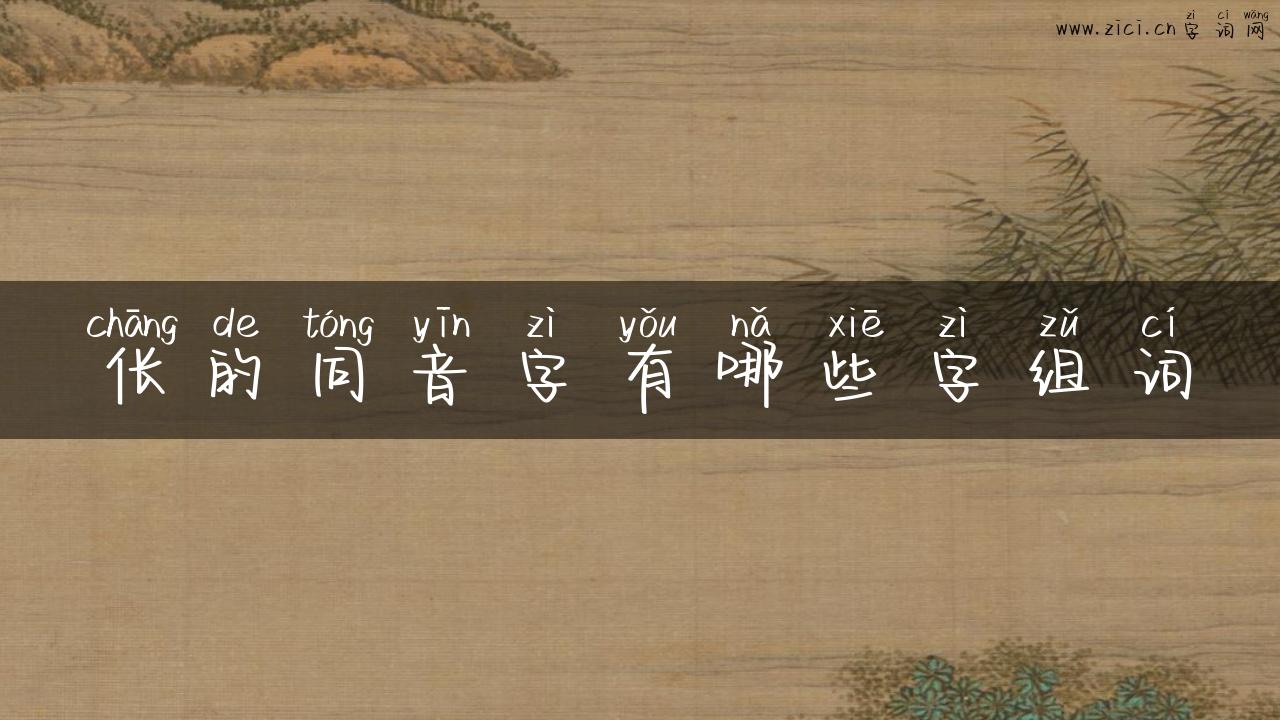 zì cí wǎng
www.zici.cn字词网
chāng de tóng yīn zì yǒu nǎ xiē zì zǔ cí
伥的同音字有哪些字组词